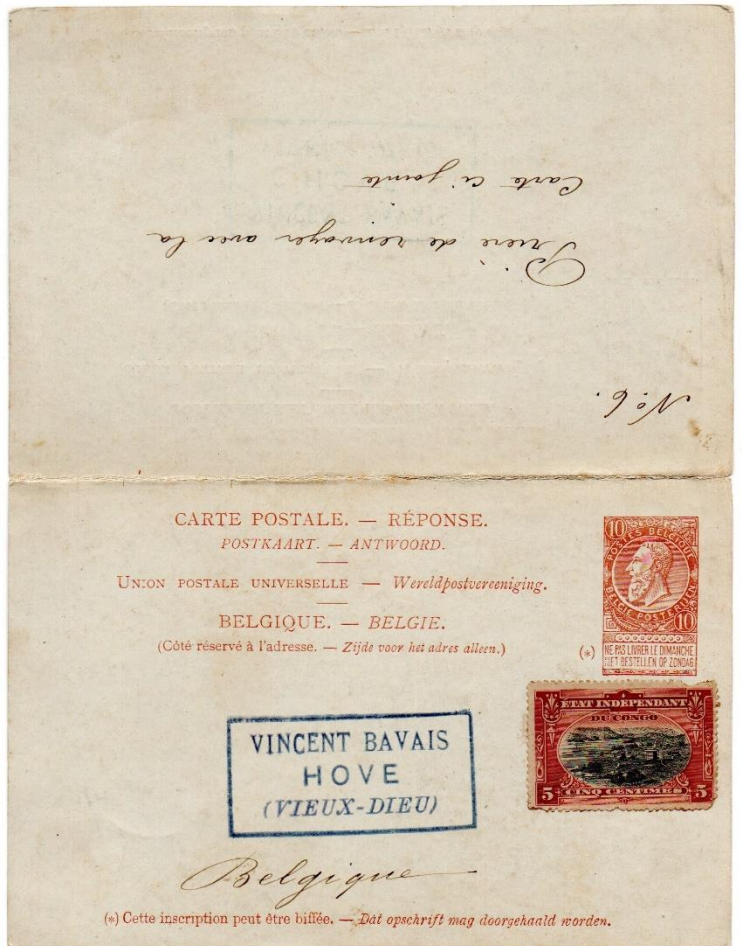 No 6.
Prière de renvoyer avec la
Carte ci jointe
CARTE POSTALE. — RÉPONSE.
POSTKAART. — ANTWOORD.
UNION POSTALE UNIVERSELLE — Wereldpostvereeniging.
BELGIQUE. — BELGIE.
(Côté réservé à l'adresse. — Zijde voor het adres alleen.)
10
POSTES BELGIQUE
BELGIE POSTERIJEN
10
(*)
NE PAS LIVRER LE DIMANCHE
NIET BESTELLEN OP ZONDAG
ETAT INDÉPENDANT
DU CONGO
5 CINQ CENTIMES 5
VINCENT BAVAIS
HOVE
(VIEUX-DIEU)
Belgique
(*) Cette inscription peut être biffée. — Dát opschrift mag doorgehaald worden.